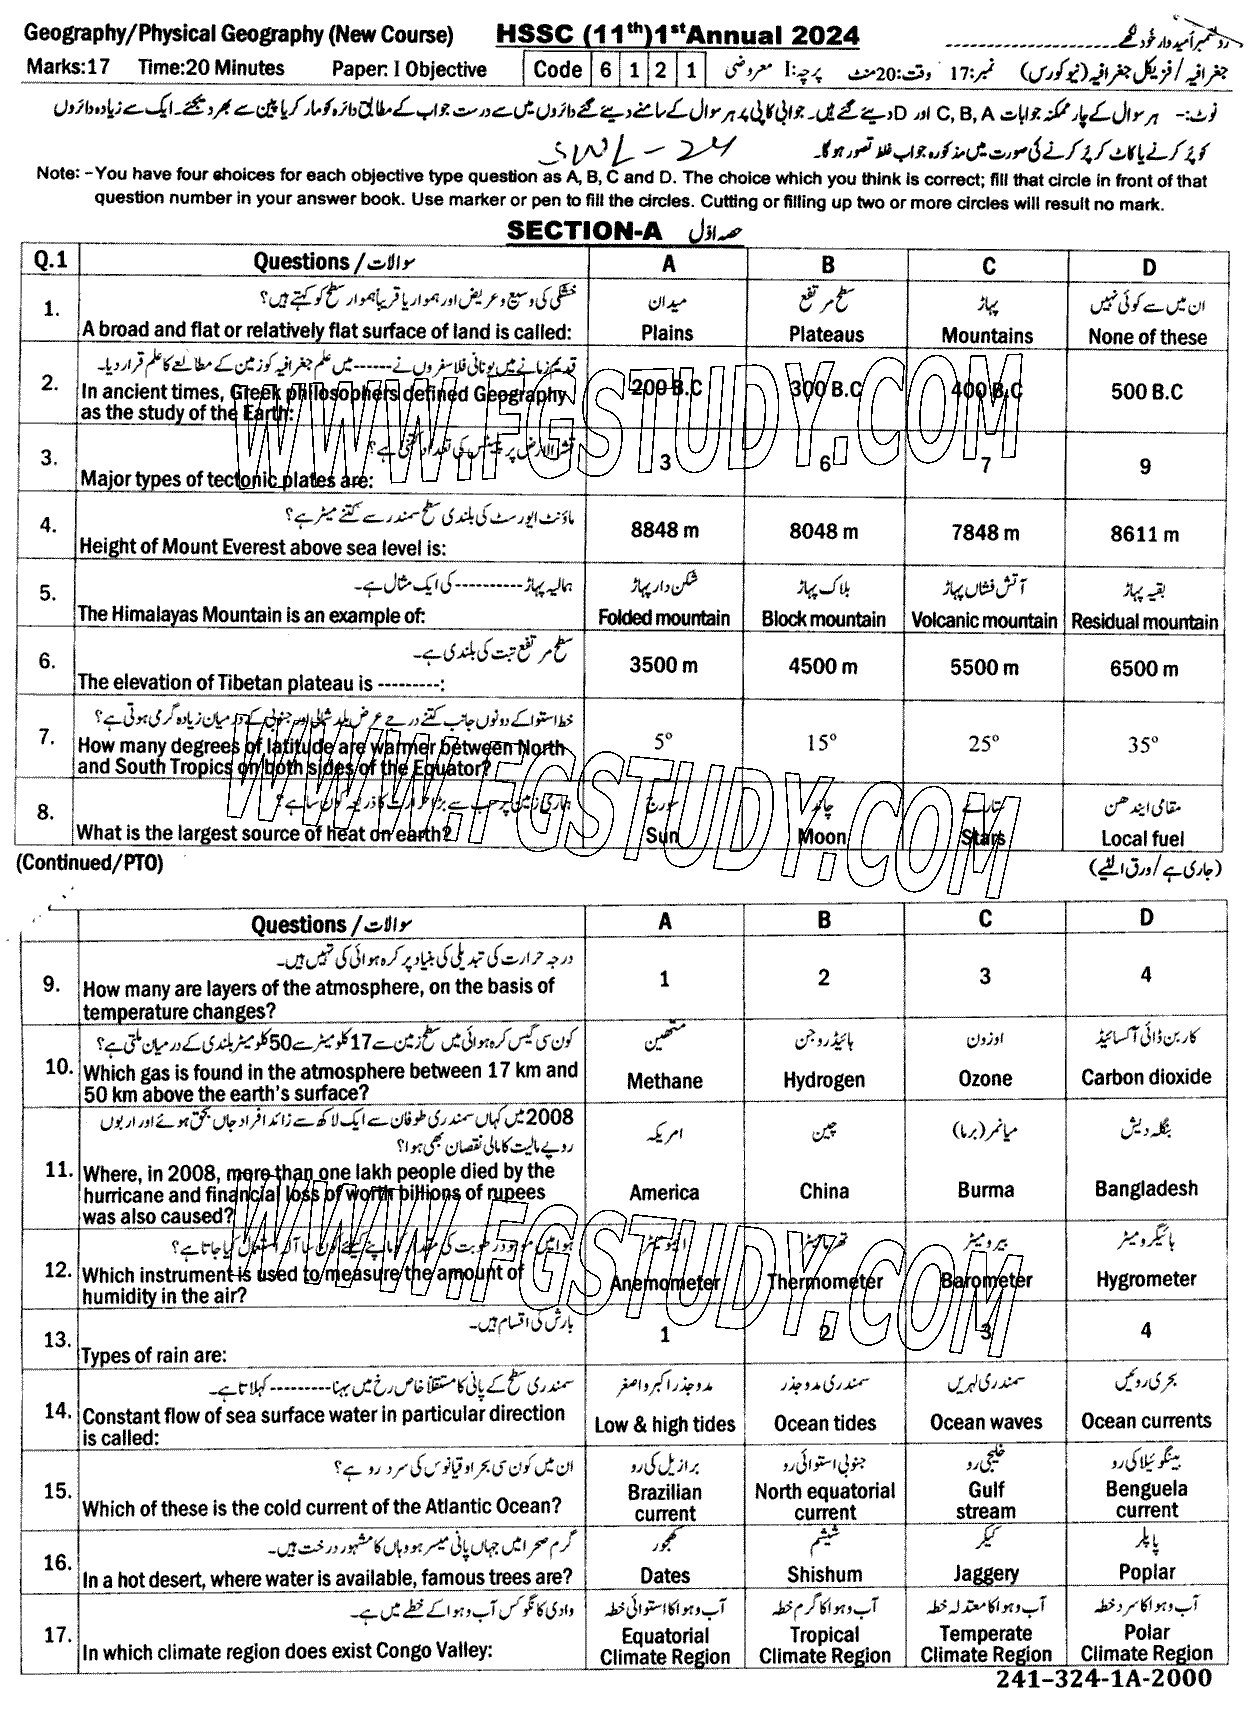 Geography/Physical Geography (New Course) HSSC (11th)1stAnnual 2024
Marks:17 Time:20 Minutes Paper: I Objective Code 6 1 2 1 پرچہ:I معروضی وقت:20منٹ نمبر:17 جغرافیہ/فزیکل جغرافیہ(نیوکورس)
نوٹ:- ہر سوال کے چار ممکنہ جوابات C, B, A اور D دیئے گئے ہیں۔ جوابی کاپی پر ہر سوال کے سامنے دیئے گئے دائروں میں سے درست جواب کے مطابق دائرہ کو مارکر یا پین سے بھر دیجئے۔ ایک سے زیادہ دائروں
کو پُر کرنے یا کاٹ کر پُر کرنے کی صورت میں مذکورہ جواب غلط تصور ہوگا۔ SWL-24
Note: -You have four choices for each objective type question as A, B, C and D. The choice which you think is correct; fill that circle in front of that
question number in your answer book. Use marker or pen to fill the circles. Cutting or filling up two or more circles will result no mark.
SECTION-A حصہ اوّل
Q.1 Questions / سوالات A B C D
1. خشکی کی وسیع و عریض اور ہموار یا قریباً ہموار سطح کو کہتے ہیں؟ میدان سطح مرتفع پہاڑ ان میں سے کوئی نہیں
A broad and flat or relatively flat surface of land is called: Plains Plateaus Mountains None of these
2. قدیم زمانے میں یونانی فلاسفروں نے ------ میں علم جغرافیہ کو زمین کے مطالعے کا علم قرار دیا۔
In ancient times, Greek philosophers defined Geography 200 B.C 300 B.C 400 B.C 500 B.C
as the study of the Earth:
3. قشرالارض پر پلیٹس کی تعداد کتنی ہے؟
Major types of tectonic plates are: 3 6 7 9
4. ماؤنٹ ایورسٹ کی بلندی سطح سمندر سے کتنے میٹر ہے؟
Height of Mount Everest above sea level is: 8848 m 8048 m 7848 m 8611 m
5. ہمالیہ پہاڑ ---------- کی ایک مثال ہے۔ شکن دار پہاڑ بلاک پہاڑ آتش فشاں پہاڑ بقیہ پہاڑ
The Himalayas Mountain is an example of: Folded mountain Block mountain Volcanic mountain Residual mountain
6. سطح مرتفع تبت کی بلندی ہے۔
The elevation of Tibetan plateau is ---------: 3500 m 4500 m 5500 m 6500 m
7. خط استوا کے دونوں جانب کتنے درجے عرض بلد شمالی اور جنوبی کے درمیان زیادہ گرمی ہوتی ہے؟
How many degrees of latitude are warmer between North 5° 15° 25° 35°
and South Tropics on both sides of the Equator?
8. ہماری زمین پر سب سے بڑا حرارت کا ذریعہ کون سا ہے؟ سورج چاند ستارے مقامی ایندھن
What is the largest source of heat on earth? Sun Moon Stars Local fuel
(Continued/PTO) (جاری ہے/ورق الٹیے)
Questions / سوالات A B C D
9. درجہ حرارت کی تبدیلی کی بنیاد پر کرہ ہوائی کی تہیں ہیں۔
How many are layers of the atmosphere, on the basis of 1 2 3 4
temperature changes?
10. کون سی گیس کرہ ہوائی میں سطح زمین سے 17 کلومیٹر سے 50 کلومیٹر بلندی کے درمیان ملتی ہے؟ متھین ہائیڈروجن اوزون کاربن ڈائی آکسائیڈ
Which gas is found in the atmosphere between 17 km and Methane Hydrogen Ozone Carbon dioxide
50 km above the earth's surface?
11. 2008 میں کہاں سمندری طوفان سے ایک لاکھ سے زائد افراد جاں بحق ہوئے اور اربوں
روپے مالیت کا مالی نقصان بھی ہوا؟ امریکہ چین میانمر(برما) بنگلہ دیش
Where, in 2008, more than one lakh people died by the America China Burma Bangladesh
hurricane and financial loss of worth billions of rupees
was also caused?
12. ہوا میں موجود رطوبت کی مقدار کو ماپنے کیلئے کون سا آلہ استعمال کیا جاتا ہے؟ تھرمامیٹر بیرومیٹر ہائیگرومیٹر
Which instrument is used to measure the amount of Anemometer Thermometer Barometer Hygrometer
humidity in the air?
13. بارش کی اقسام ہیں۔
Types of rain are: 1 2 3 4
14. سمندری سطح کے پانی کا مستقلاً خاص رخ میں بہنا --------- کہلاتا ہے۔ مدوجذر اکبر و اصغر سمندری مدوجذر سمندری لہریں بحری روئیں
Constant flow of sea surface water in particular direction Low & high tides Ocean tides Ocean waves Ocean currents
is called:
15. ان میں کون سی بحر اوقیانوس کی سرد رو ہے؟ برازیل کی رو جنوبی استوائی رو خلیجی رو بینگوئیلا کی رو
Which of these is the cold current of the Atlantic Ocean? Brazilian current North equatorial current Gulf stream Benguela current
16. گرم صحرا میں جہاں پانی میسر ہو وہاں کا مشہور درخت ہیں۔ کھجور شیشم کیکر پاپلر
In a hot desert, where water is available, famous trees are? Dates Shishum Jaggery Poplar
17. وادی کانگو کس آب و ہوا کے خطے میں ہے۔ آب و ہوا کا استوائی خطہ آب و ہوا کا گرم خطہ آب و ہوا کا معتدلہ خطہ آب و ہوا کا سرد خطہ
In which climate region does exist Congo Valley: Equatorial Climate Region Tropical Climate Region Temperate Climate Region Polar Climate Region
241-324-1A-2000
WWW.FGSTUDY.COM
WWW.FGSTUDY.COM
WWW.FGSTUDY.COM